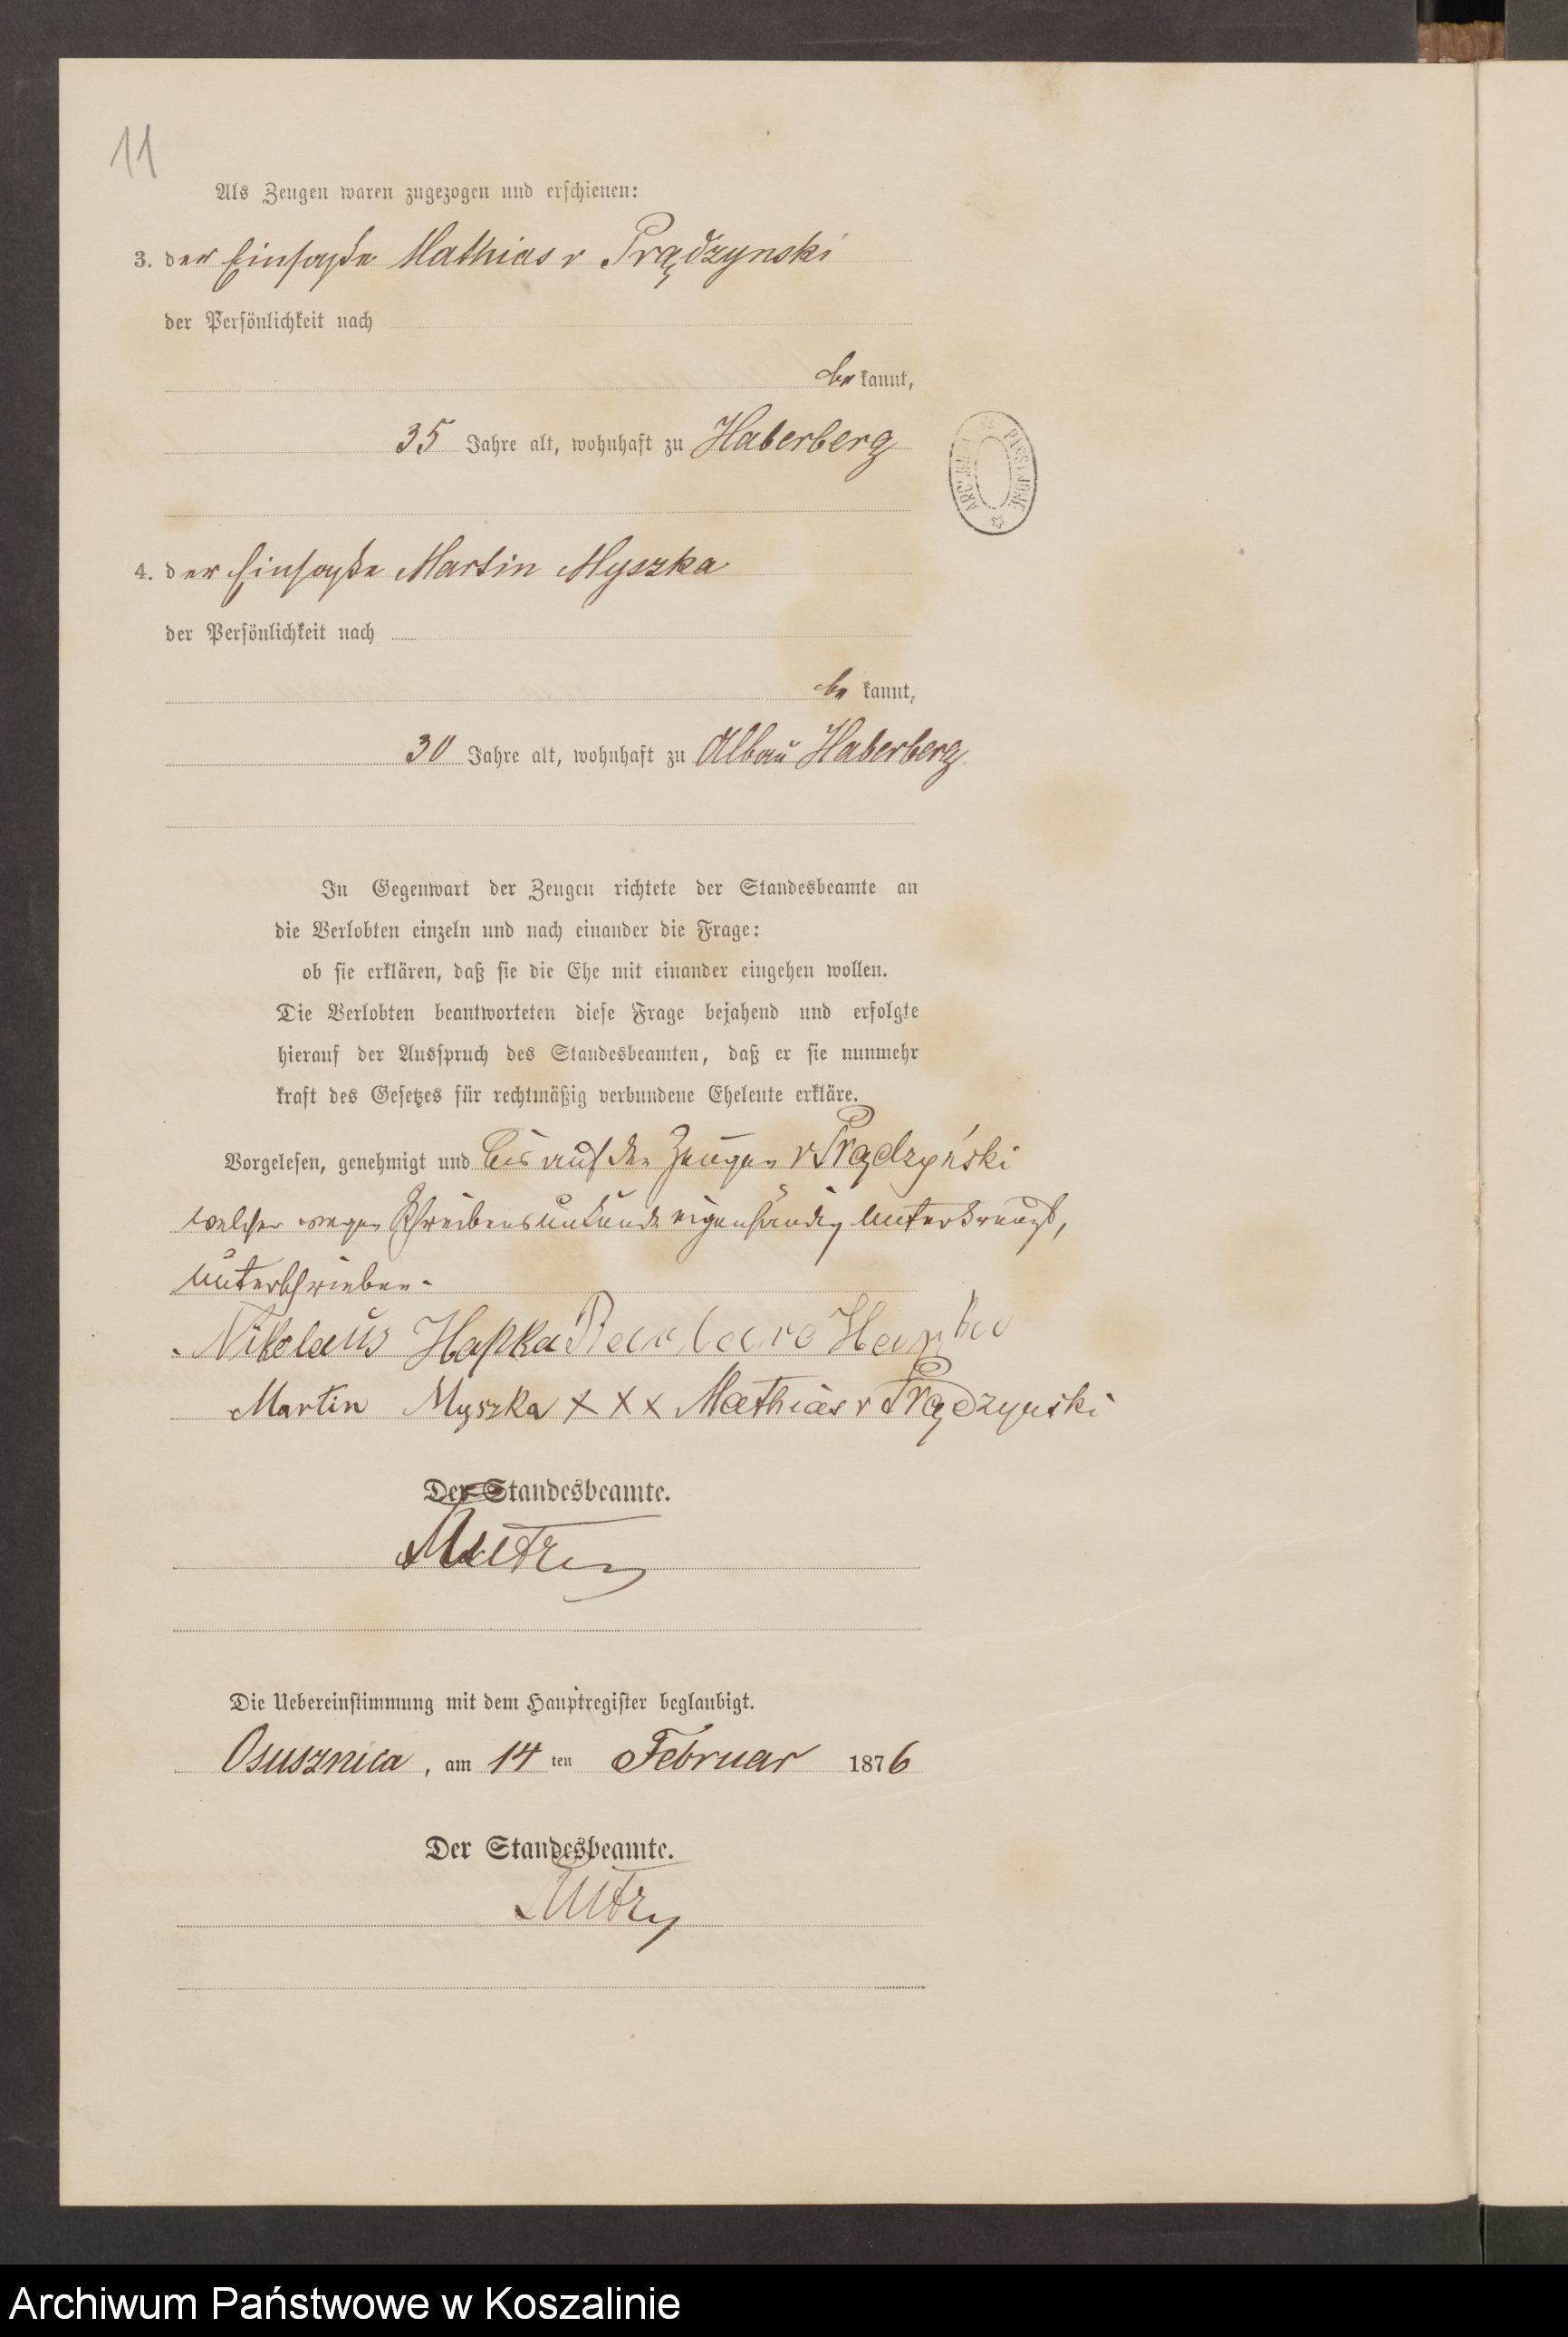 11
Als Zeugen waren zugezogen und erschienen:
3. der Einsaße Mathias v Prądzynski
der Persönlichkeit nach
be kannt,
35 Jahre alt, wohnhaft zu Haberberg
4. der Einsaße Martin Myszka
der Persönlichkeit nach
be kannt,
30 Jahre alt, wohnhaft zu Abbau Haberberg
In Gegenwart der Zeugen richtete der Standesbeamte an
die Verlobten einzeln und nach einander die Frage:
ob sie erklären, daß sie die Ehe mit einander eingehen wollen.
Die Verlobten beantworteten diese Frage bejahend und erfolgte
hierauf der Ausspruch des Standesbeamten, daß er sie nunmehr
kraft des Gesetzes für rechtmäßig verbundene Eheleute erkläre.
Vorgelesen, genehmigt und bis auf den Zeugen v Prądzyński
welcher wegen Schreibensunkunde eigenhändig unterkreuzt,
unterschrieben.
Nikolaus Hapka Barbara
Martin Myszka x x x Mathias v Prądzynski
Der Standesbeamte.
Die Uebereinstimmung mit dem Hauptregister beglaubigt.
Osusznica, am 14 ten Februar 1876
Der Standesbeamte.
Archiwum Państwowe w Koszalinie